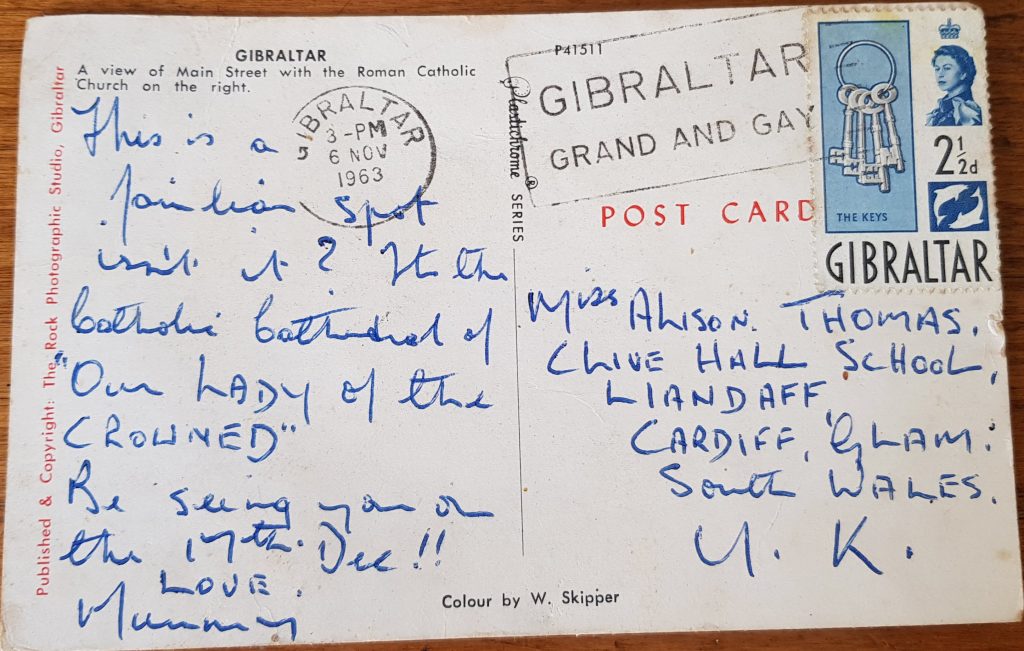 GIBRALTAR
A view of Main Street with the Roman Catholic
Church on the right.
Published & Copyright: The Rock Photographic Studio, Gibraltar
This is a
familiar spot
isn't it? Its the
Catholic Cathedral of
"Our LADY of the
CROWNED"
Be seeing you on
the 17th. Dec!!
LOVE.
Mummy
GIBRALTAR
3-PM
6 NOV
1963
P41511
Plastichrome® SERIES
GIBRALTAR
GRAND AND GAY
POST CARD
THE KEYS
2½d
GIBRALTAR
Miss ALISON. THOMAS.
CLIVE HALL SCHOOL,
LLANDAFF,
CARDIFF, GLAM:
South WALES.
U. K.
Colour by W. Skipper